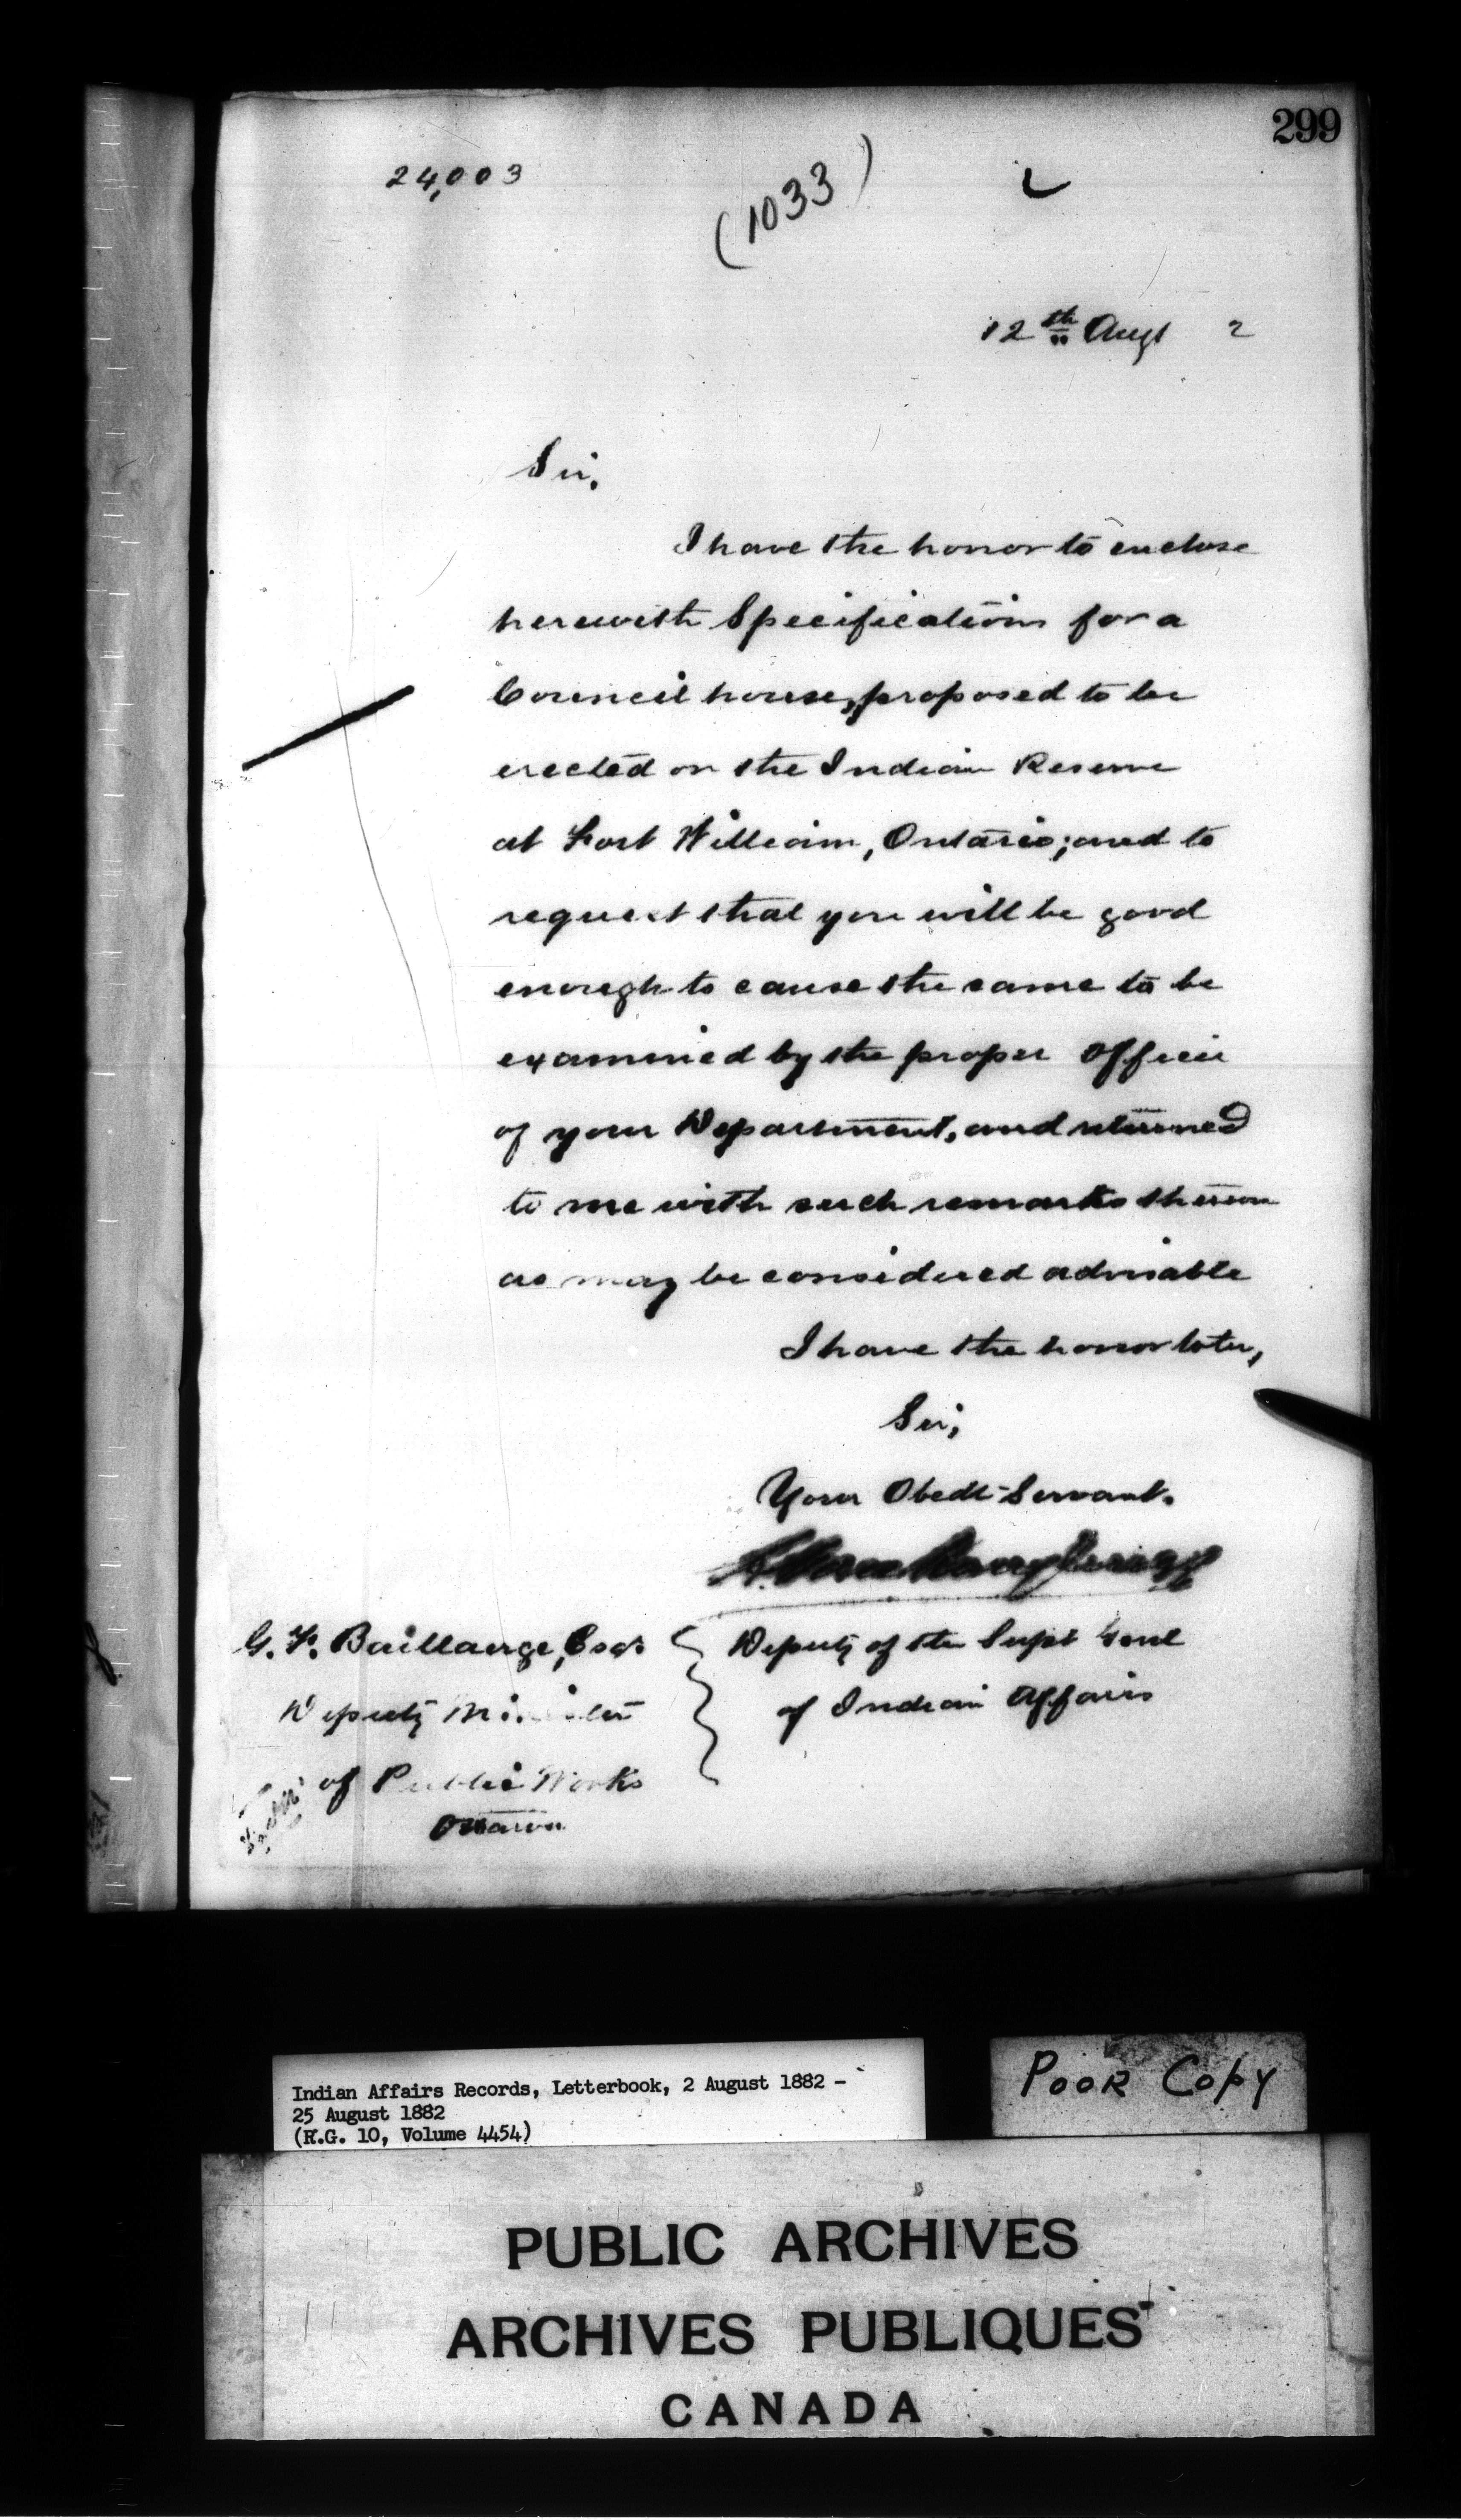 299
24,003
(1033)
L
12th Augt 2
Sir,
I have the honor to enclose
herewith Specifications for a
Council house, proposed to be
erected on the Indian Reserve
at Fort William, Ontario; and to
request that you will be good
enough to cause the same to be
examined by the proper Officer
of your Department, and returned
to me with such remarks thereon
as may be considered advisable
I have the honor to be,
Sir,
Your Obedt Servant.
Deputy of the Supt Genl
of Indian Affairs
G. F. Baillairge, Esqr
Deputy Minister
of Public Works
Ottawa
Indian Affairs Records, Letterbook, 2 August 1882 -
25 August 1882
(R.G. 10, Volume 4454)
Poor Copy
PUBLIC ARCHIVES
ARCHIVES PUBLIQUES
CANADA